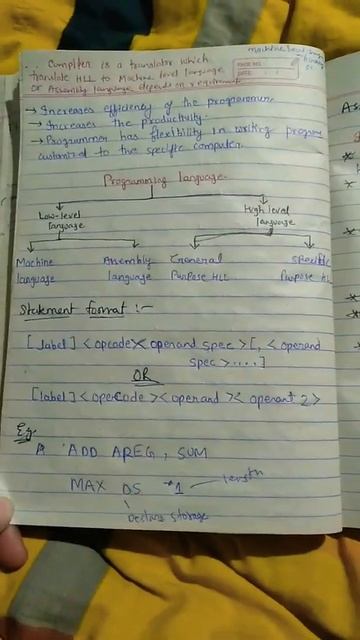 Compiler is a translator which
translate HLL to Machine level language
or Assembly language depends on requirement
→ Increases efficiency of the programmer
→ Increases the productivity.
→ Programmer has flexibility in writing program
customized to the specific computer.
Programming language.
Low-level
language
High level
language
Machine
language
Assembly
language
General
Purpose HLL
Specific
Purpose HL
Statement format :-
[Label] <opcode>< operand spec >[, < operand
spec >....]
OR
[label] < opcode > < operand > < operant 2 >
Eg.
A ADD AREG, SUM
MAX DS "1 length
Declare storage